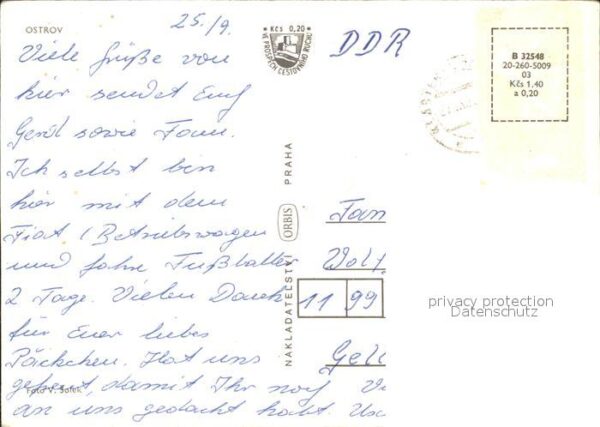 OSTROV
25./9.
Viele Grüße von
hier sendet Euch
Gerd sowie Fam.
Ich selbst bin
hier mit dem
Fiat (Betriebswagen
und fahre Fußballer
2 Tage. Vielen Dank
für Euer liebes
Päckchen. Hat uns
gefreut, damit Ihr noch
an uns gedacht habt.
Foto V. Šolek
Kčs 0,20
VE PROSPĚCH CESTOVNÍHO RUCHU
DDR
B 32548
20-260-5009
03
Kčs 1,40
a 0,20
NAKLADATELSTVÍ ORBIS PRAHA
Fam
11 99
privacy protection
Datenschutz